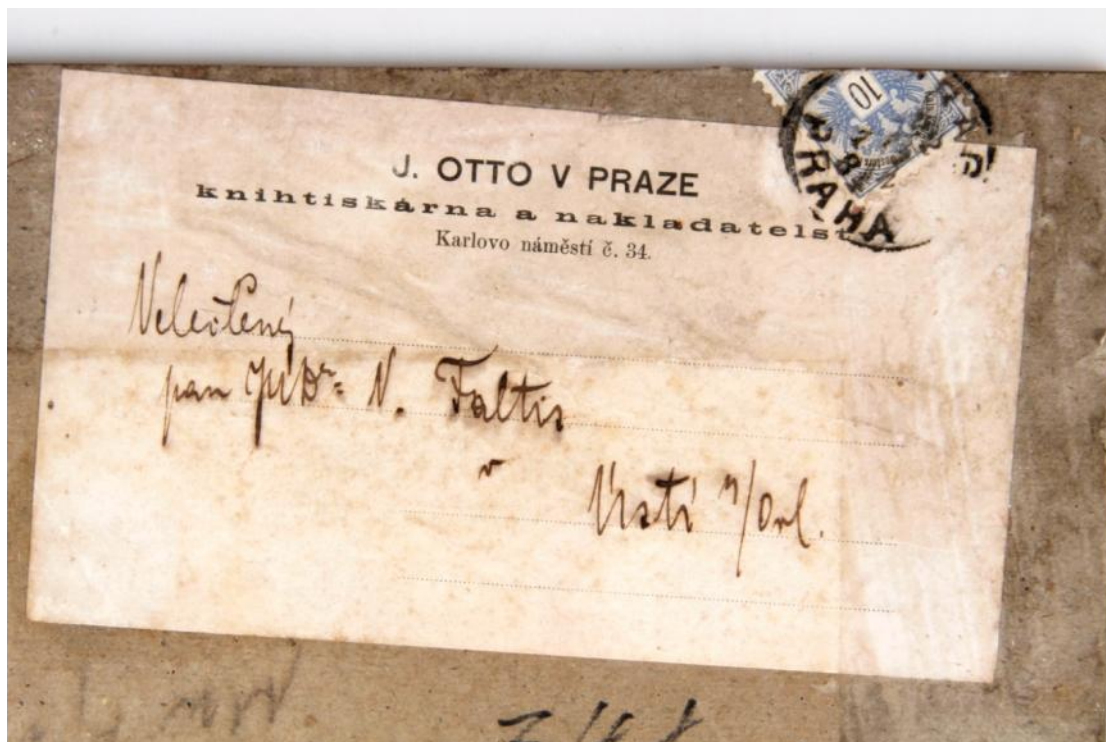 J. OTTO V PRAZE
knihtiskárna a nakladatelst
Karlovo náměstí č. 34.
10
PRAHA
Velectěný
pan JUDr. N. Faltis
v
Ústí n/Orl.